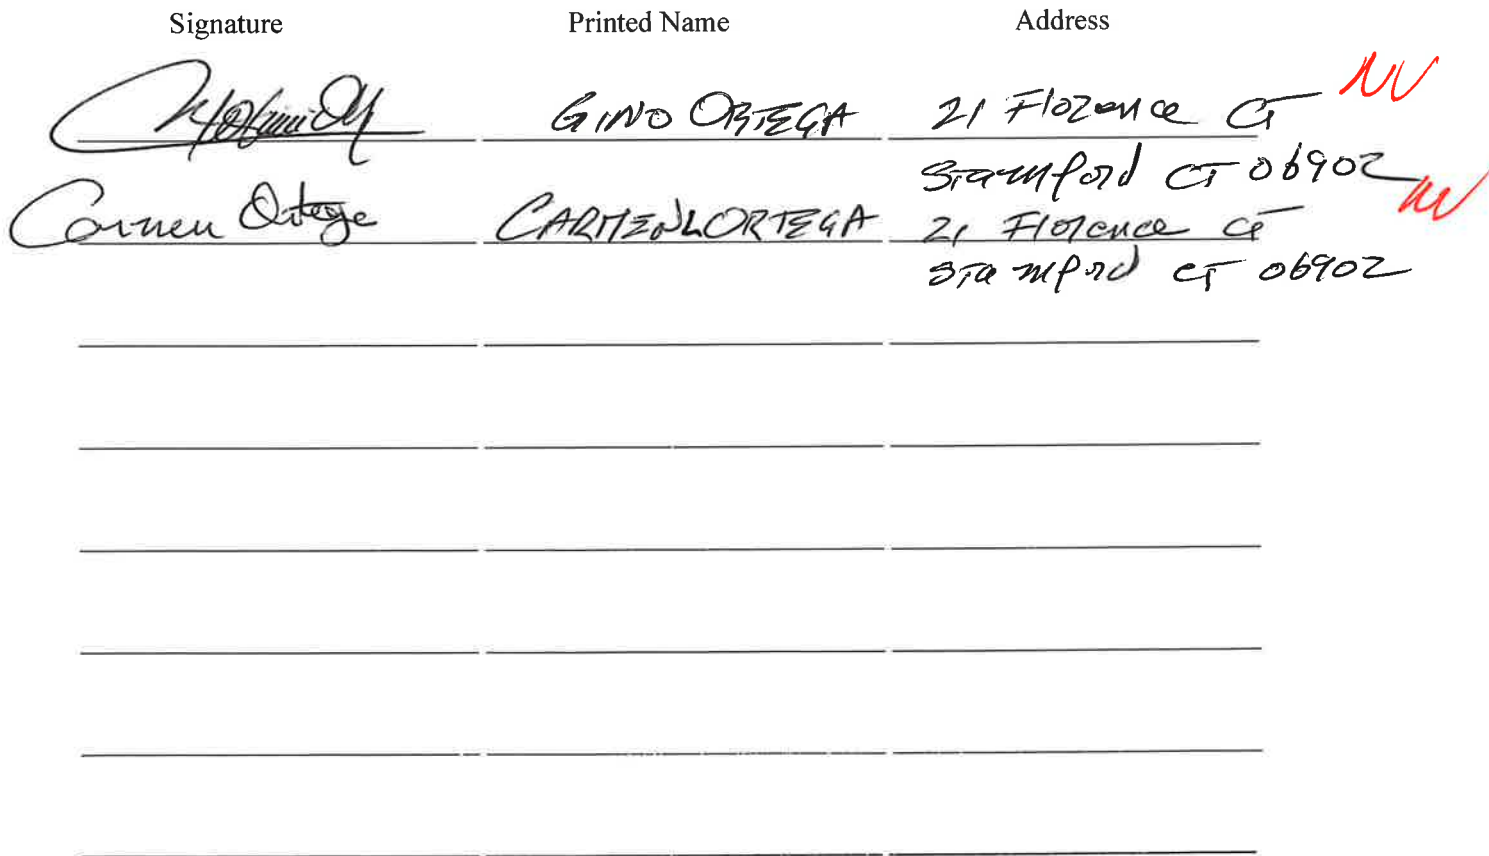 Signature Printed Name Address
GINO ORTEGA 21 Florence CT NV
Stamford CT 06902
Carmen Ortega CARMEN L ORTEGA 21 Florence CT NV
Stamford CT 06902